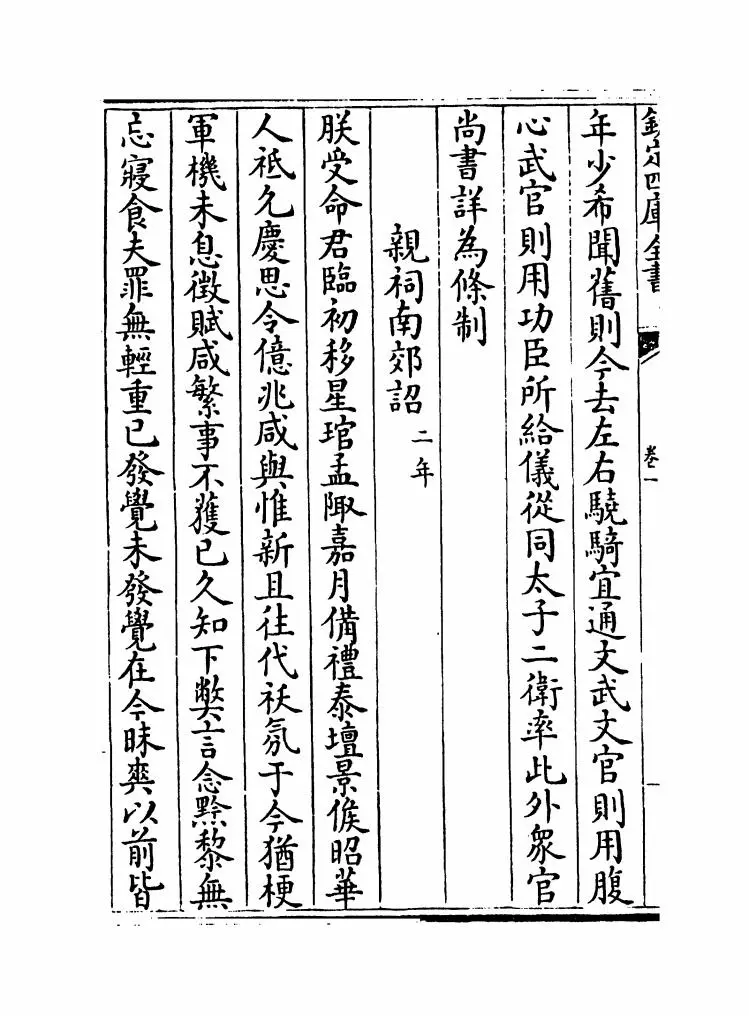 欽定四庫全書
卷一
年少希聞舊則今去左右驍騎宜通文武文官則用腹
心武官則用功臣所給儀從同太子二衛率此外衆官
尚書詳為條制
親祠南郊詔二年
朕受命君臨初移星琯孟陬嘉月備禮泰壇景候昭華
人祗允慶思令億兆咸與惟新且往代祅氛于今猶梗
軍機未息徴賦咸繁事不獲已久知下弊言念黔黎無
忘寢食夫罪無輕重已發覺未發覺在今昧爽以前皆